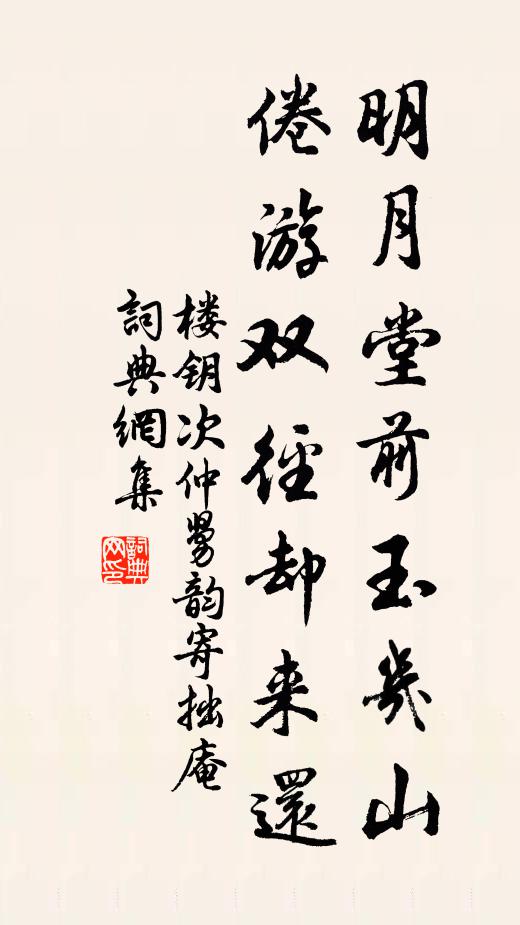 明月堂前玉幾山
倦游双徑却来還
楼钥次仲舅韵寄拙庵
詞典網集
詞典网印